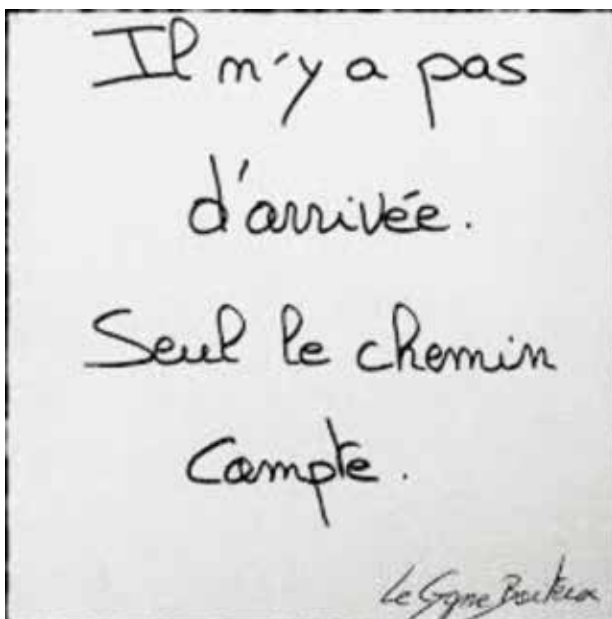 Il n'y a pas
d'arrivée.
Seul le chemin
compte.
Le Cygne Boiteux